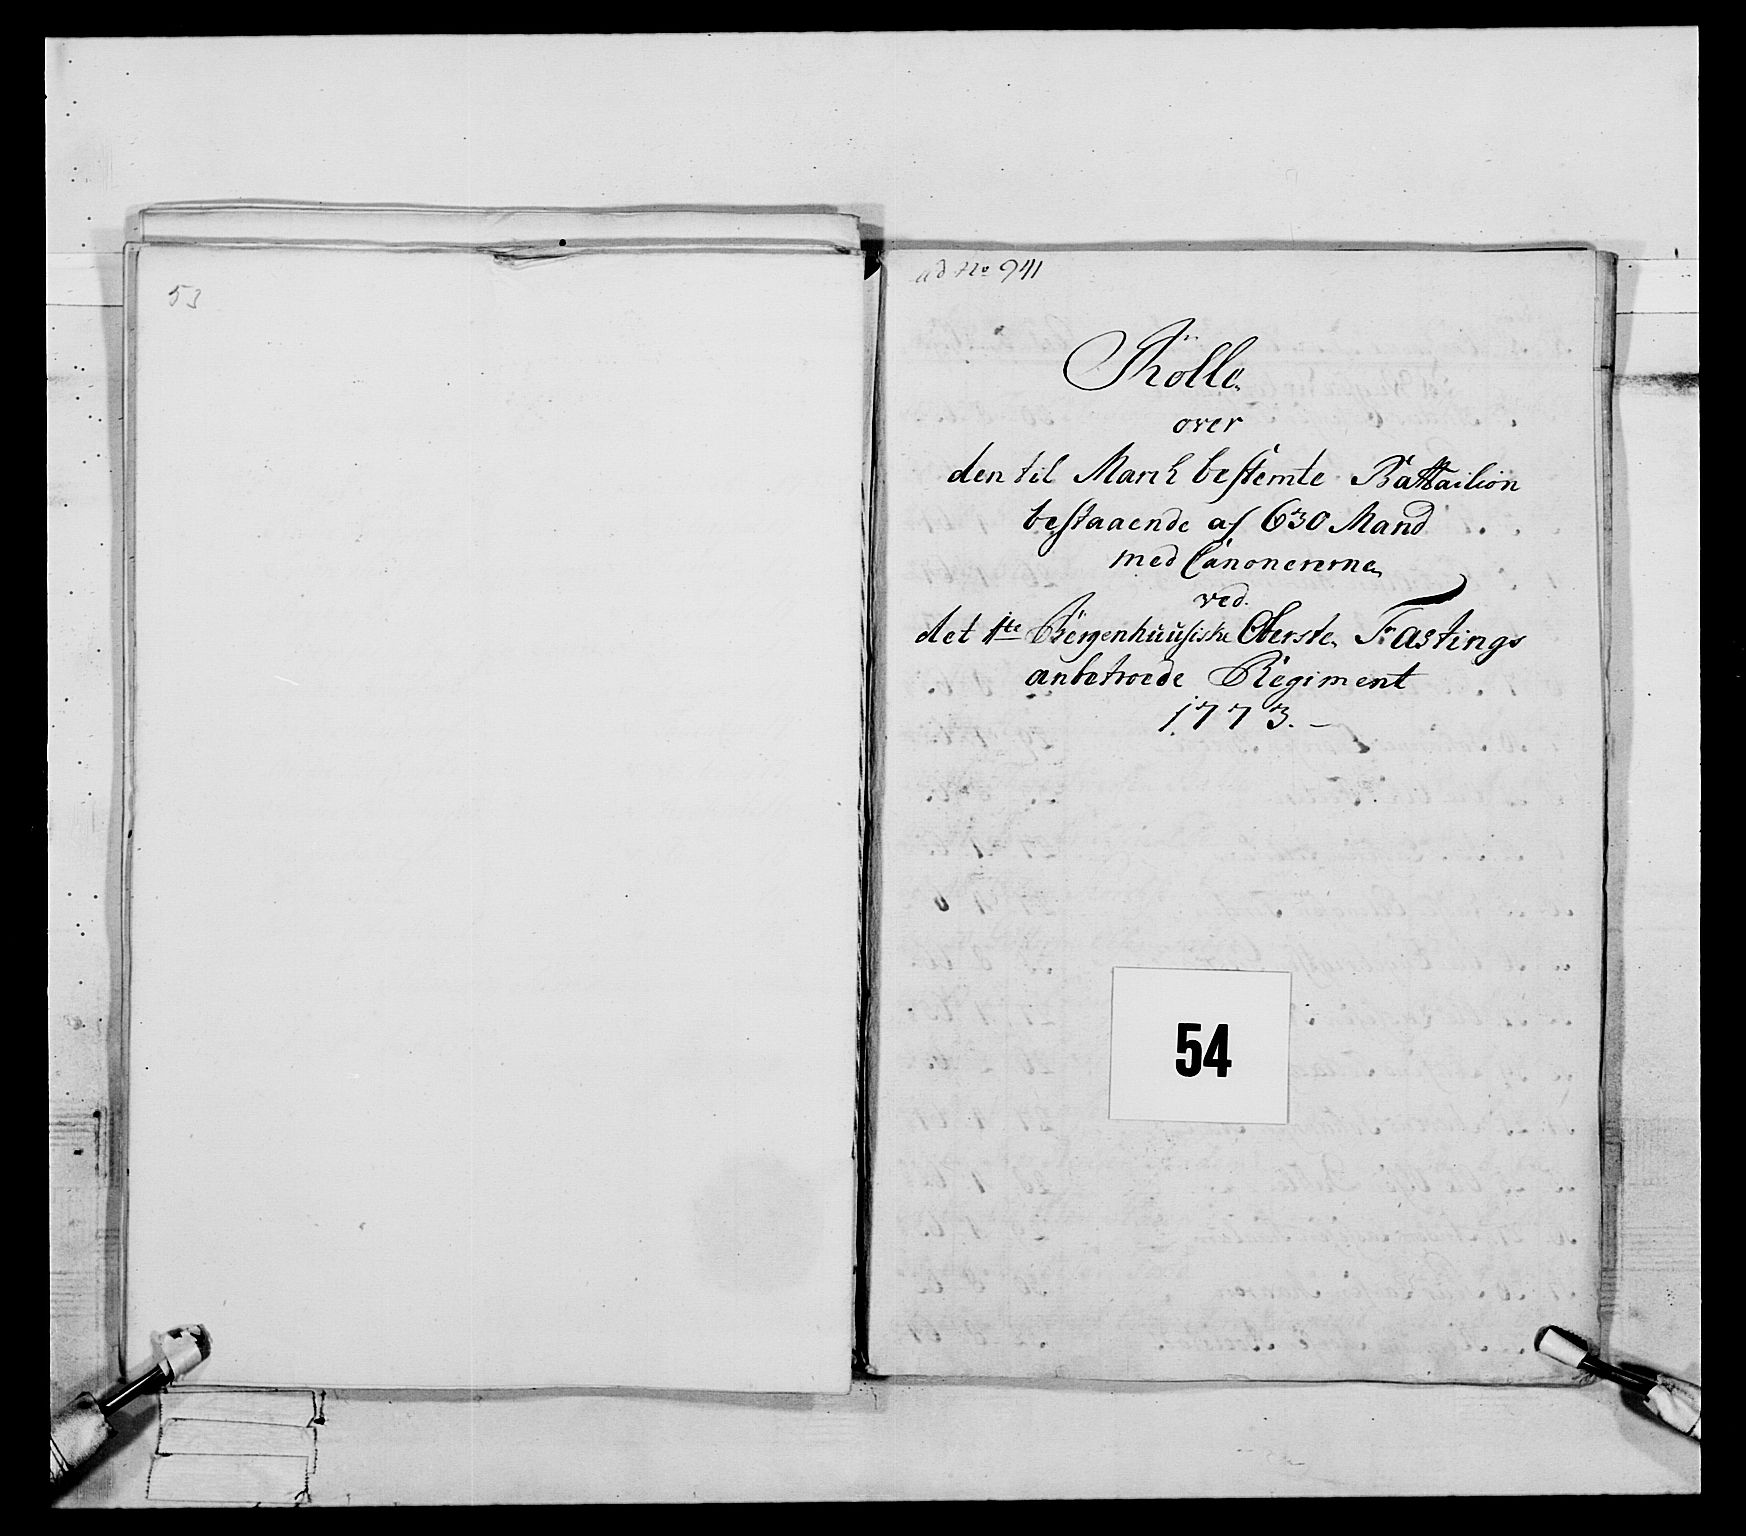 53
ad No 941
Rolle
over
den til March bestemte Battailion
bestaaende af 630 Mand
med Canonererne
ved
det 1te Bergenhuusiske Oberste Fastings
anbetroede Regiment
1773.
54